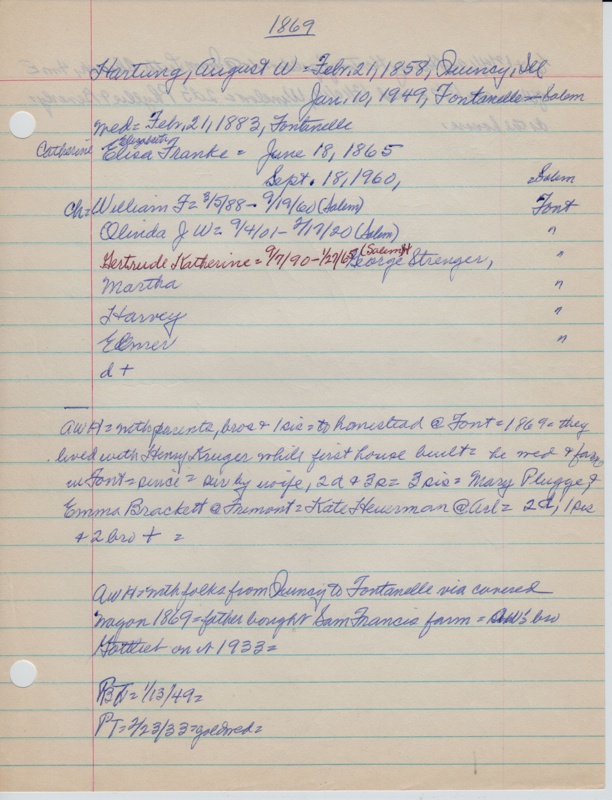 1869
Hartung, August W = Febr. 21, 1858, Quincy, Ill
Jan. 10, 1949, Fontanelle - Salem
med = Febr. 21, 1883, Fontanelle
Elizabeth
Catherine Elisa Franke = June 18, 1865
Sept. 18, 1960, Salem
ch = William F = 3/5/88 - 9/19/60 (Salem) Font
Olinda J W = 9/4/01 - 2/17/20 (Salem) "
Gertrude Katherine = 9/7/90 - 1/27/68 (Salem) George Strenger, "
Martha "
Harvey "
Elmer "
d +
AWH = with parents, bros & 1 sis = to homestead @ Font = 1869 = they
lived with Henry Kruger while first house built = he med & farm
in Font = since = siv by wife, 2d & 3s = 3 sis = Mary Plugge &
Emma Brackett @ Fremont = Kate Heuerman @ Arl = 2d, 1 sis
& 2 bro + =
AWH = with folks from Quincy to Fontanelle via covered
wagon 1869 = father bought Sam Francis farm = AW's bro
Gottliet on it 1933 =
BT = 1/13/49 =
PT = 2/23/33 = gold wed =